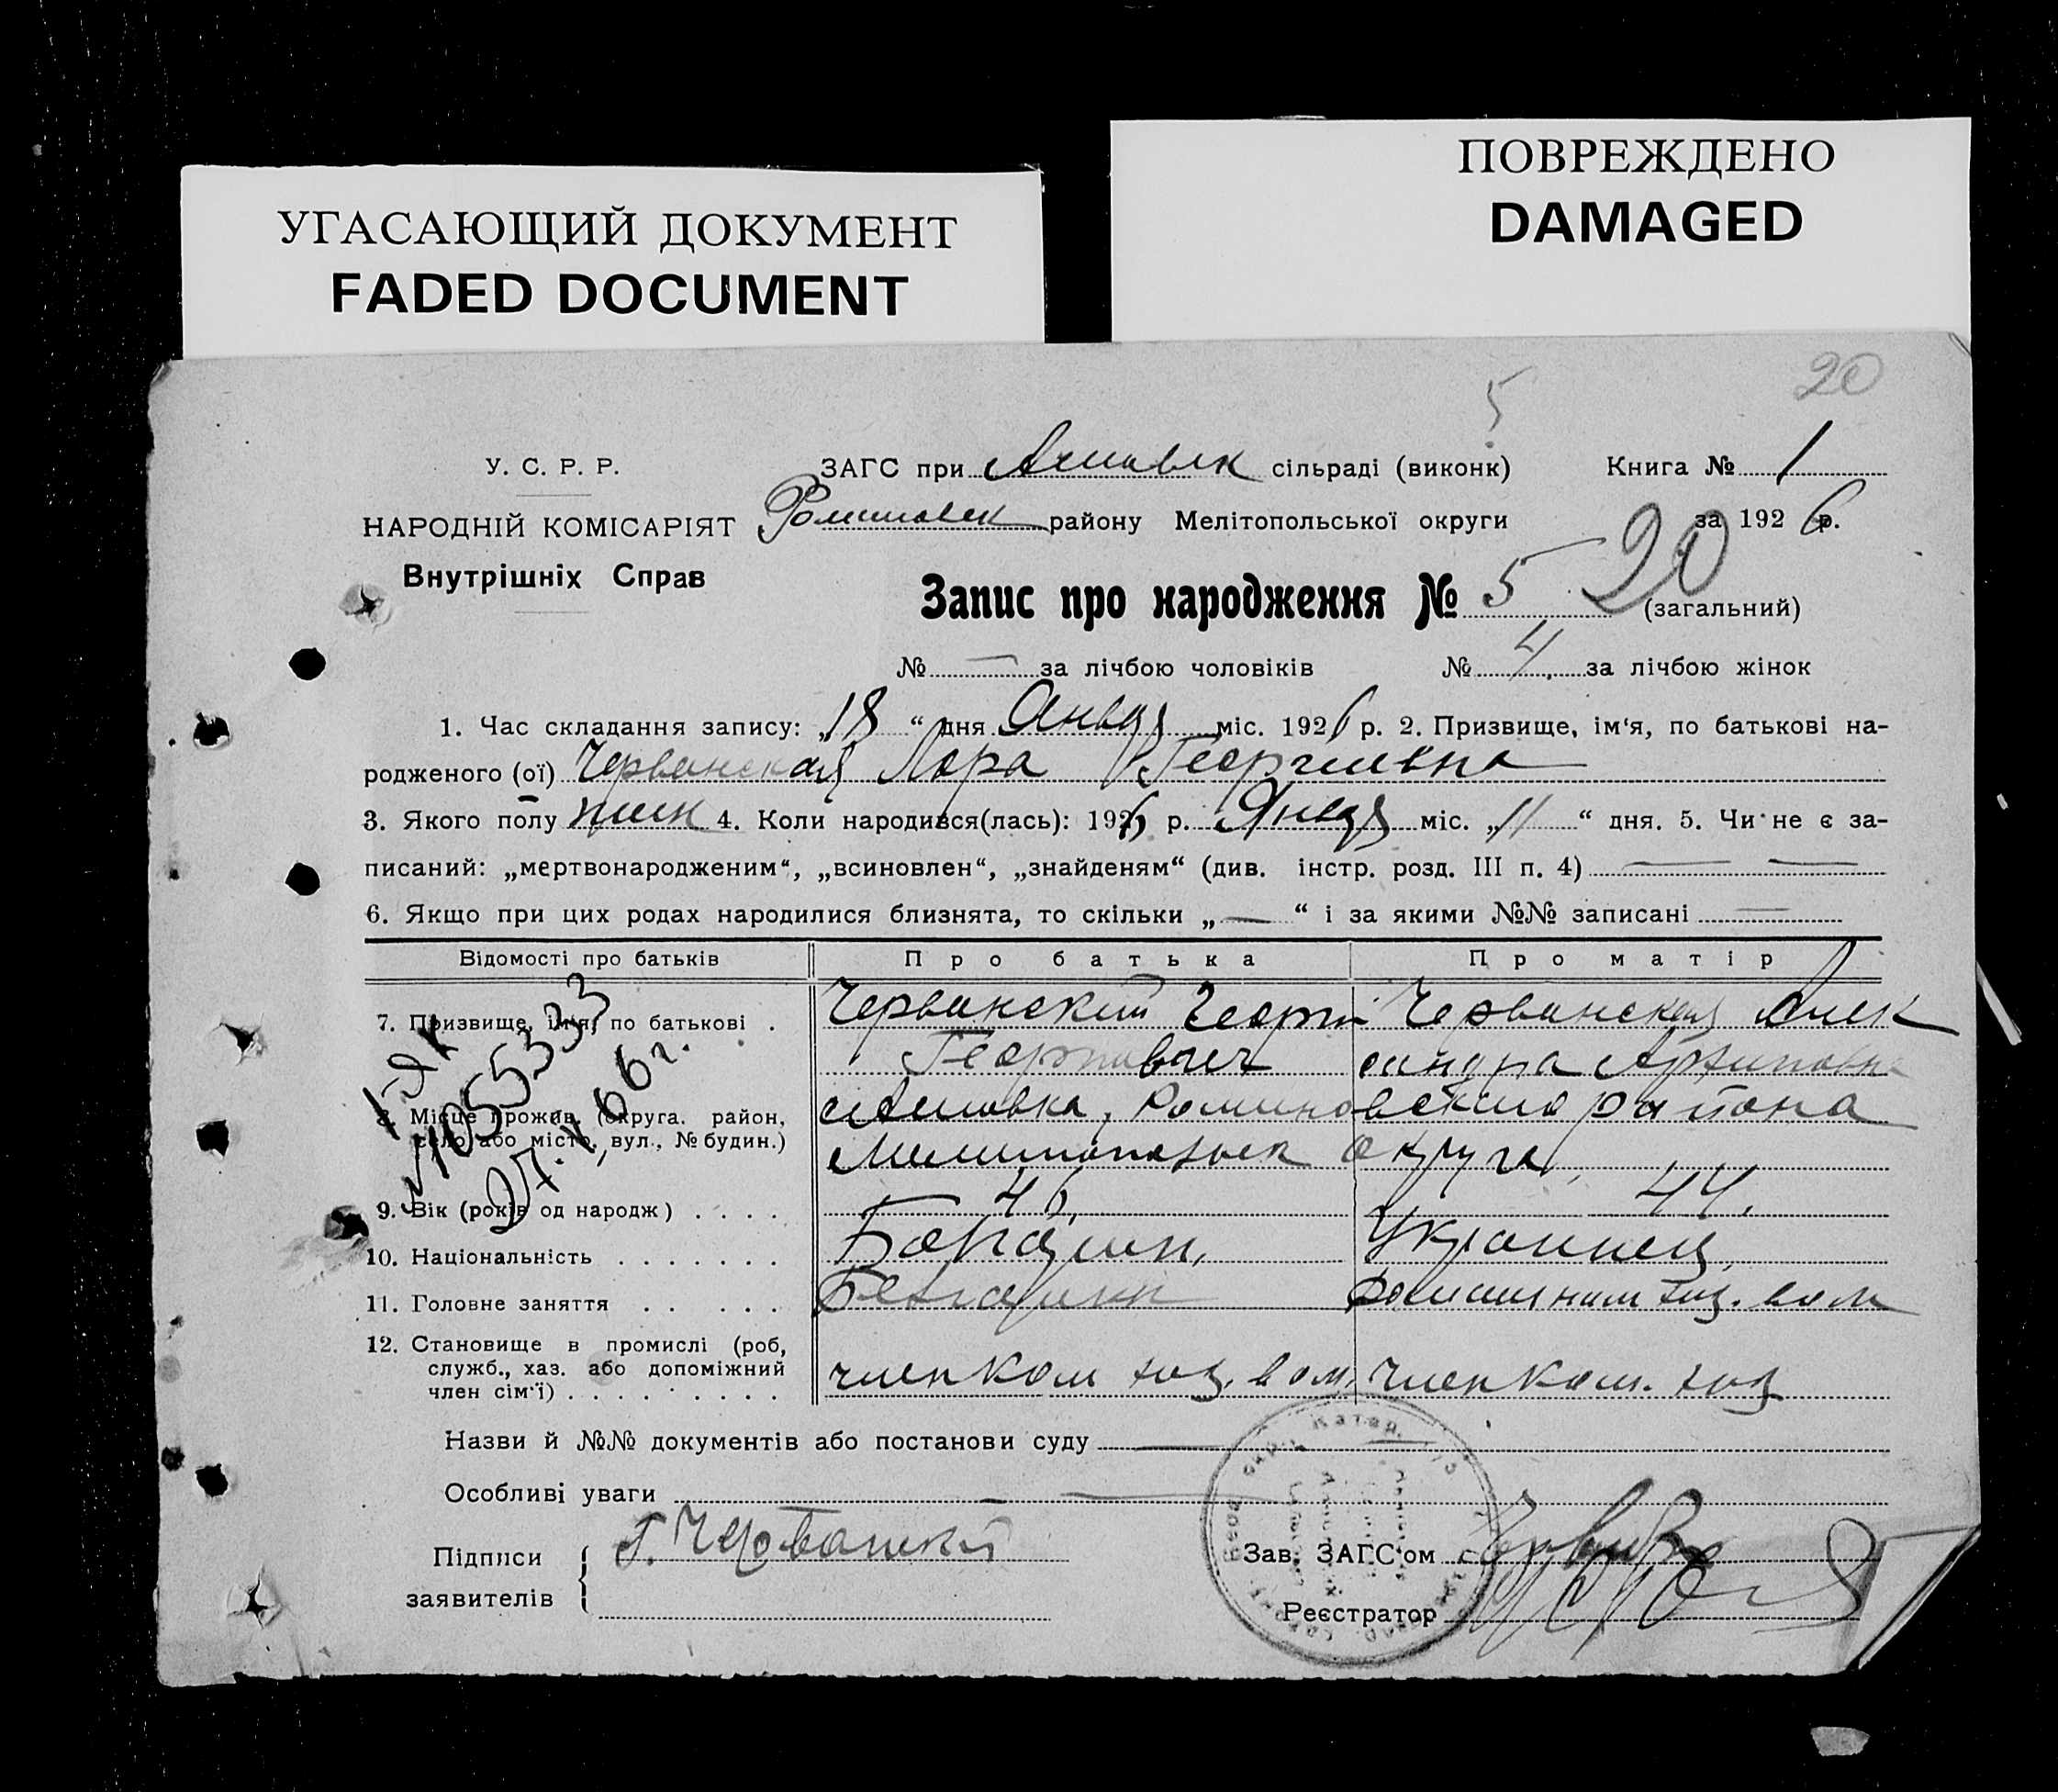 УГАСАЮЩИЙ ДОКУМЕНТ
FADED DOCUMENT
ПОВРЕЖДЕНО
DAMAGED
20
5
У. С. Р. Р.
ЗАГС при сільраді (виконк) Книга № 1
НАРОДНІЙ КОМІСАРІЯТ
району Мелітопольської округи за 1926 р.
Внутрішніх Справ
Запис про народження № 5 20 (загальний)
№ — за лічбою чоловіків № 4 за лічбою жінок
1. Час складання запису: „18“ дня Январ міс. 1926 р. 2. Призвище, ім‘я, по батькові на-
родженого (ої) Черванская Лора Георгиевна
3. Якого полу жен 4. Коли народився(лась): 1926 р. Январ міс. „11“ дня. 5. Чи не є за-
писаний: „мертвонародженим“, „всиновлен“, „знайденям“ (див. інстр. розд. III п. 4) — —
6. Якщо при цих родах народилися близнята, то скільки „—“ і за якими №№ записані —
Відомості про батьків Про батька Про матір
7. Призвище, ім‘я, по батькові . Черванский Георги Черванская Алек
Георгиевич сандра Архиповна
8. Місце прожив. (округа, район, село або місто, вул., № будин.)
района
округа,
9. Вік (років од народж) . . . . 46, 44.
10. Національність . . . . . . . Украинец
11. Головне заняття . . . . .
12. Становище в промислі (роб, служб., хаз. або допоміжний член сім‘ї) . . . . . . . . .
член ком член ком.
I-ЯК
1055333
27.V,66г.
Назви й №№ документів або постанови суду —
Особливі уваги —
Підписи Г. Черванский
заявителів
Зав. ЗАГС‘ом
Реєстратор